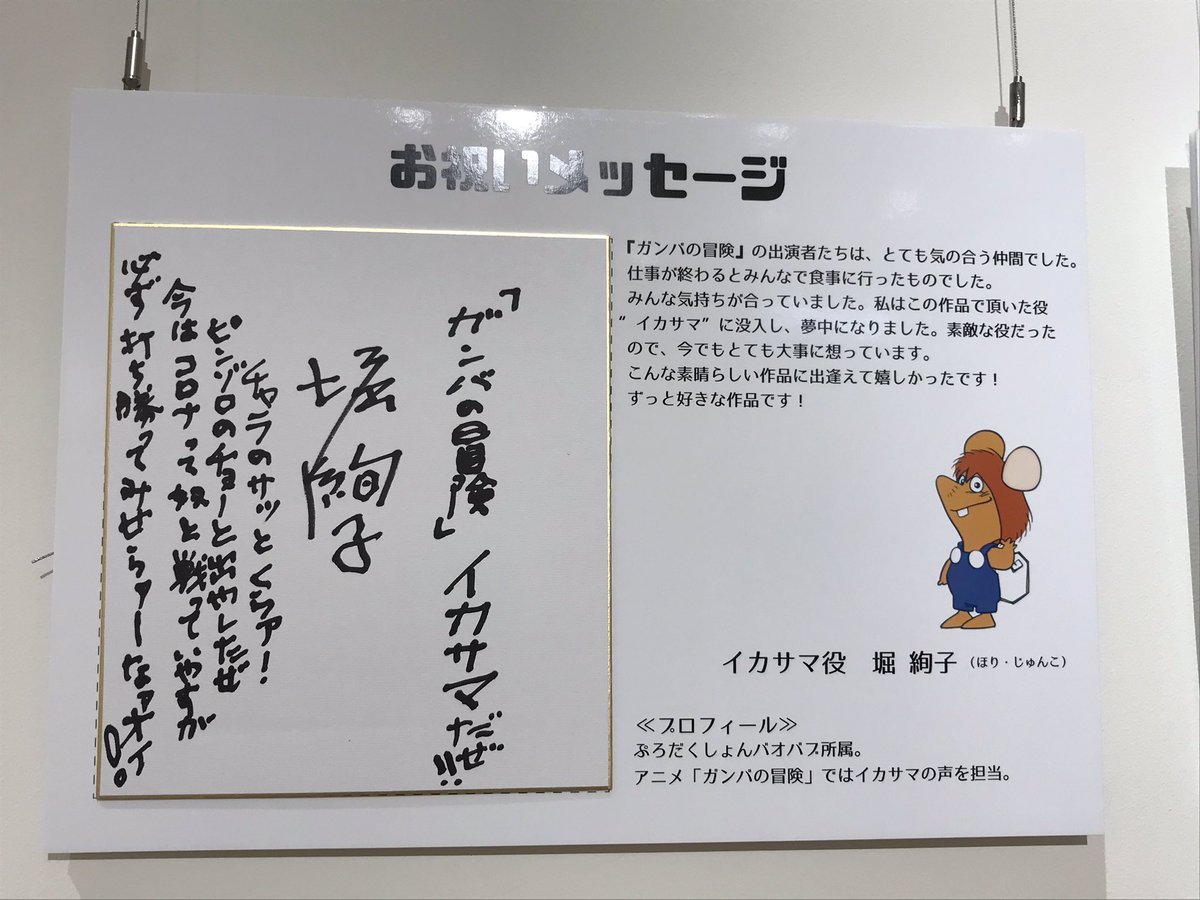 お祝いメッセージ
「ガンバの冒険」イカサマだぜ!!
堀絢子
チャラのサッとくらァ!
ピンゾロのチョーと出やしたぜ
今はコロナって奴と戦っていやすが
必ず打ち勝ってみせらァーなァオイ!
『ガンバの冒険』の出演者たちは、とても気の合う仲間でした。
仕事が終わるとみんなで食事に行ったものでした。
みんな気持ちが合っていました。私はこの作品で頂いた役
“イカサマ”に没入し、夢中になりました。素敵な役だった
ので、今でもとても大事に想っています。
こんな素晴らしい作品に出逢えて嬉しかったです!
ずっと好きな作品です!
イカサマ役 堀 絢子(ほり・じゅんこ)
≪プロフィール≫
ぷろだくしょんバオバブ所属。
アニメ「ガンバの冒険」ではイカサマの声を担当。